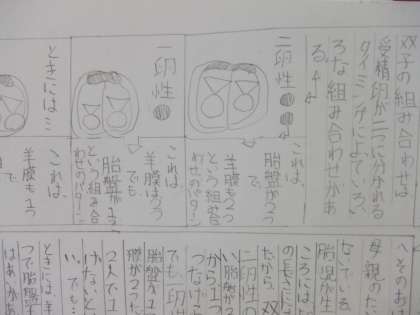 双子の組み合わせは
受精卵が二つに分かれる
タイミングによっていろい
ろな組み合わせがあ
る。
二卵性
これは、
胎盤が2つ
で
羊膜も2つ
という組み合
わせのパターン
一卵性
これは
羊膜は2つ
でも
胎盤が1つ
という組み合
わせのパターン
ときには…
これは、
羊膜も1つ
で
へそのおは
母親のたい
ないている
胎児が生
ころには
の長さに
だから、双
二卵性の
い胎盤が2
から1つ
つなげら
でも一卵性
胎盤が1
膜が2つ
2人で1
けないと
い。でも…
ときには羊
つで胎盤